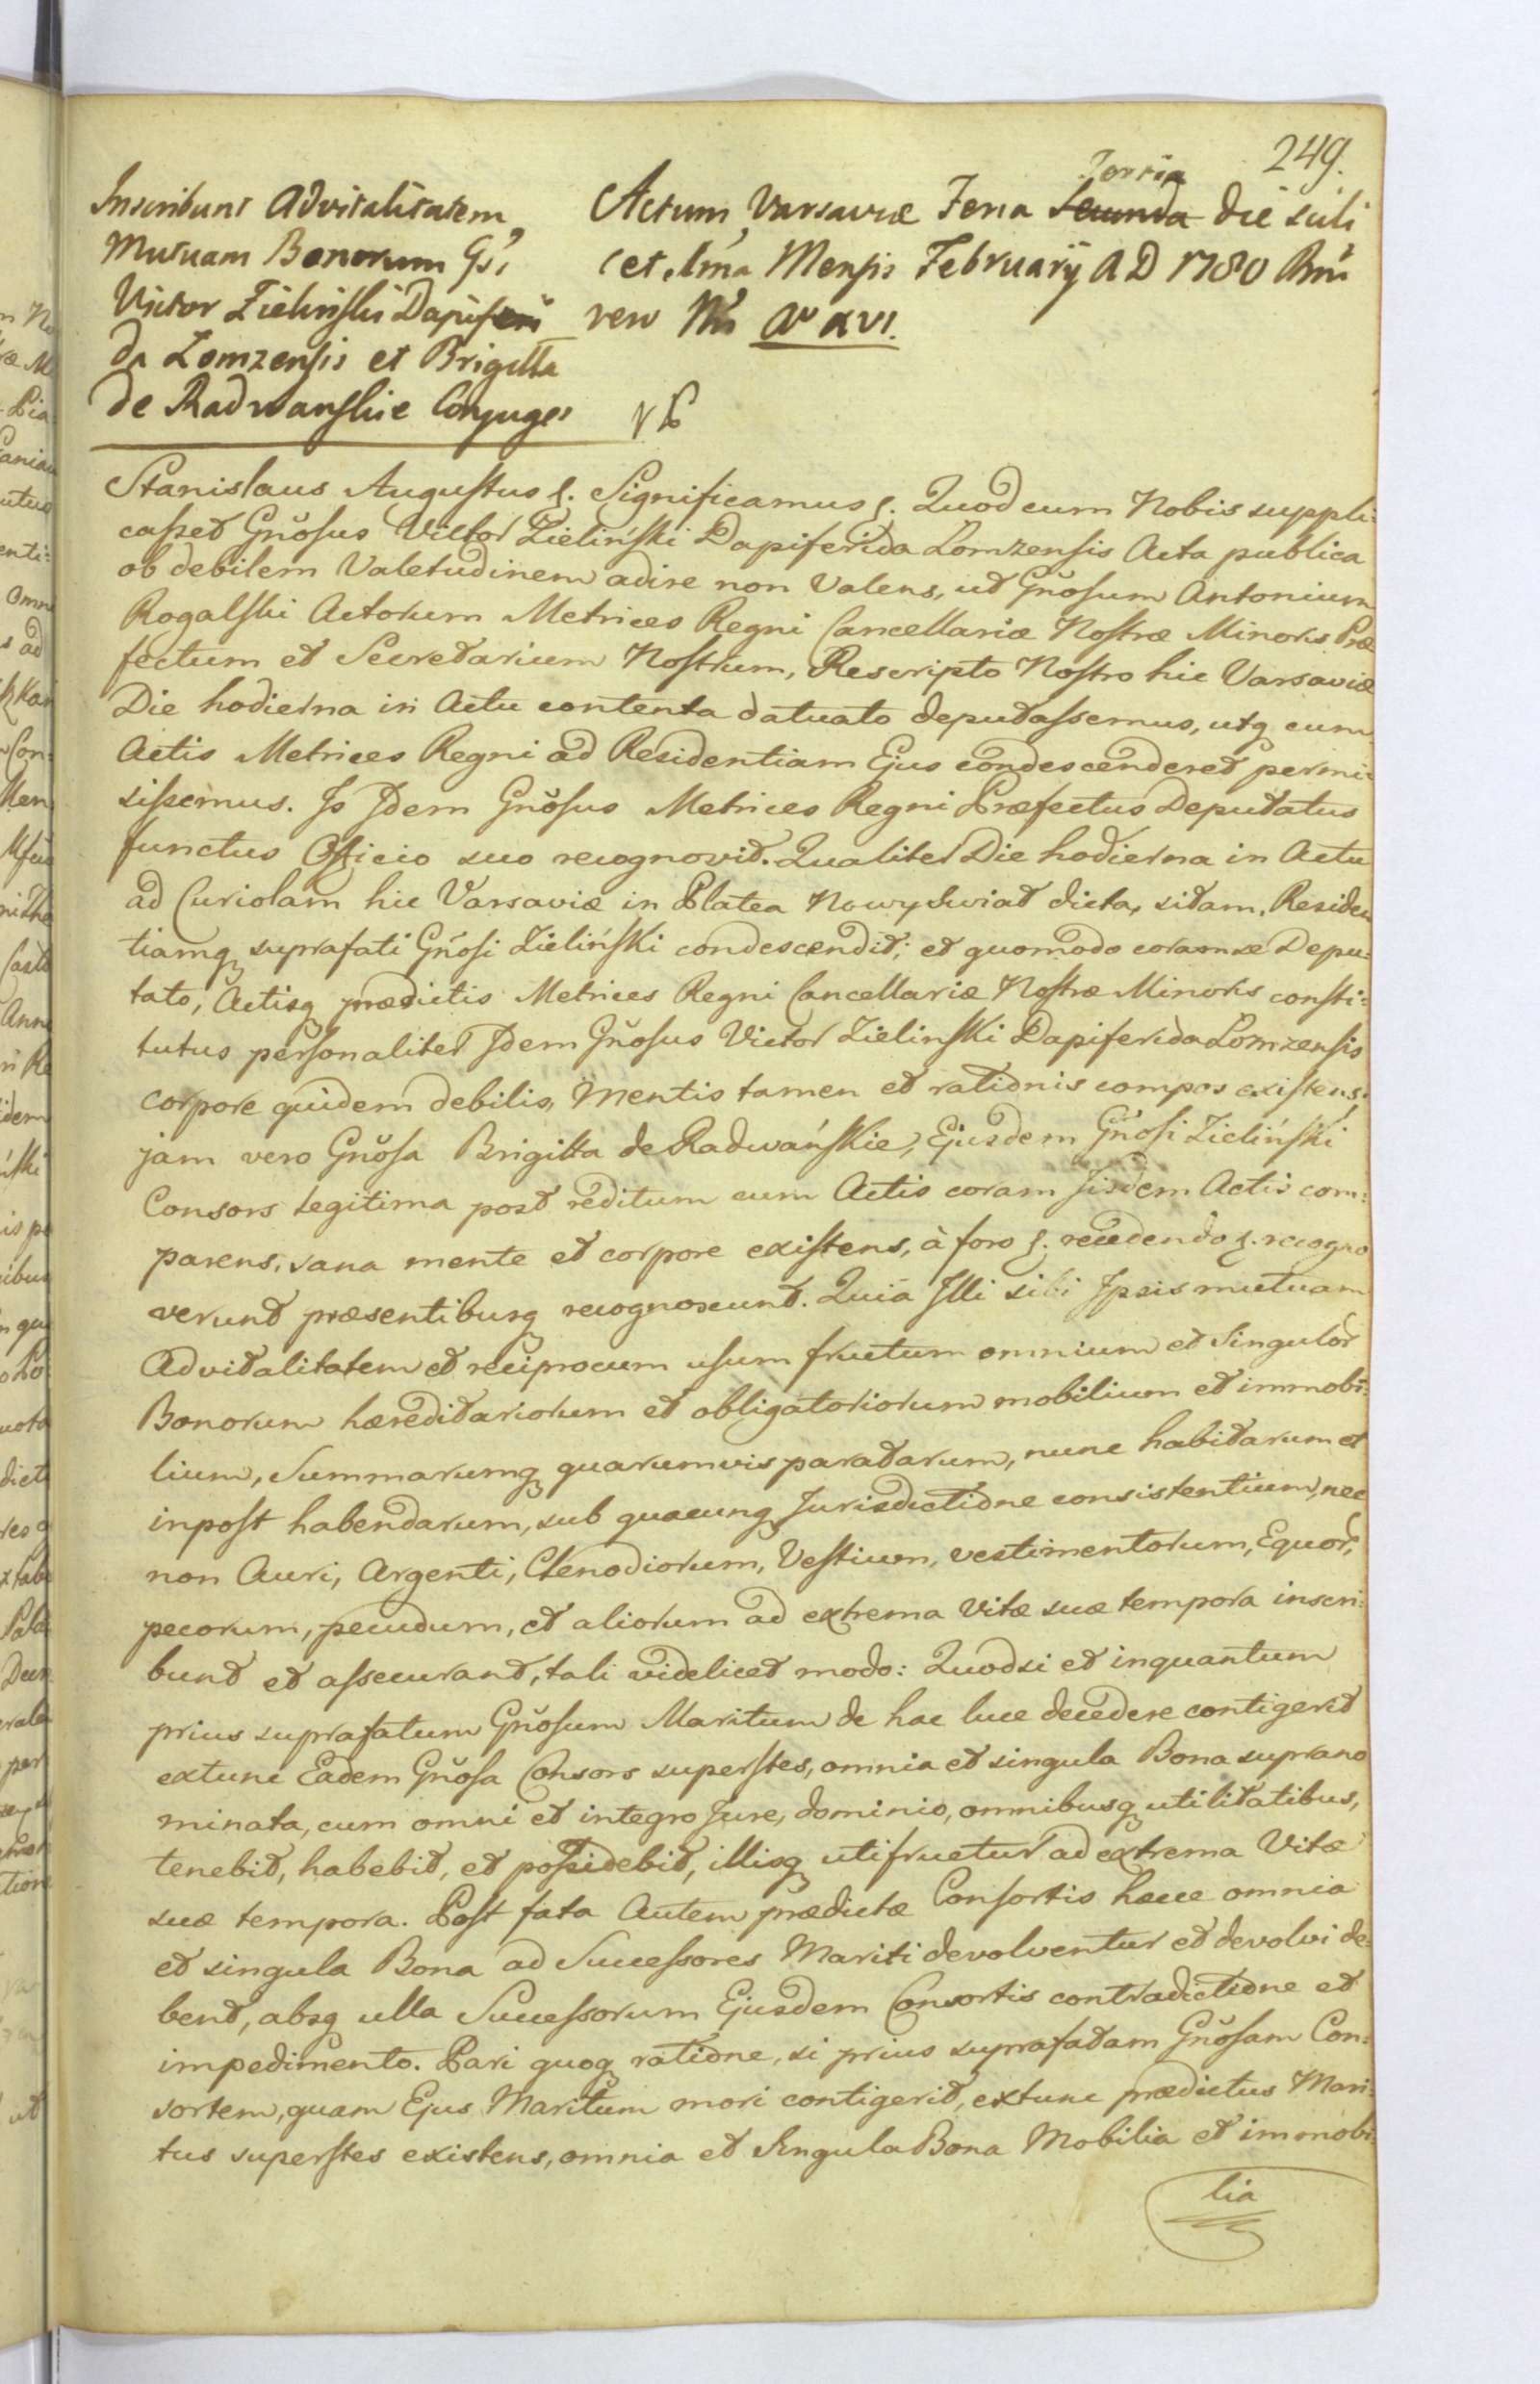 249.
Inscribunt Advitalitatem
Mutuam Bonorum Gsi
Victor Zieliński Dapiferi
da Lomzensis et Brigitta
de Radwanskie Conjuges
Actum Varsaviæ Feria Secunda Tertia die
Mensis February A D 1780 Rni
vero Nri Ao XVI.
Stanislaus Augustus s. Significamus s. Quod cum Nobis suppli:
casset Gnõsus Victor Zieliński Dapiferida Lomzensis Acta publica
ob debilem Valetudinem adire non Valens, ut Gnõsum Antonium
Rogalski Actorum Metrices Regni Cancellariæ Nostræ Minoris Præ
fectum et Secretarium Nostrum, Rescripto Nostro hic Varsaviæ
Die hodierna in Actu contenta datuato deputassemus, utq cum
Actis Metrices Regni ad Residentiam Ejus condescenderet permi:
sissemus. Is Idem Gnõsus Metrices Regni Præfectus Deputatus
functus Officio suo recognovit. Qualiter Die hodierna in Actu
ad Curiolam hic Varsaviæ in Platea Nowy Swiat dicta, sitam, Residen
tiamq suprafati Gnõsi Zieliński condescendit; et quomodo coram se Depu:
tato, Actisq prædictis Metrices Regni Cancellariæ Nostræ Minoris consti:
tutus personaliter Idem Gnõsus Victor Zielinski Dapiferida Lomzensis
corpore quidem debilis, Mentis tamen et rationis compos existens,
jam vero Gnõsa Brigitta de Radwańskie, Ejusdem Gnõsi Zieliński
Consors legitima post reditum cum Actis coram Iisdem Actis com:
parens, sana mente et corpore existens, à foro s. recedendo s. recogno
verunt præsentibusq recognoscunt. Quia Illi sibi Ipsis mutuam
Advitalitatem et reciprocum usum fructum omnium et Singulor
Bonorum hæreditariorum et obligatoriorum mobilium et immobi:
lium, Summarumq quarumvis paratarum, nunc habitarum et
inpost habendarum, sub quacunq Jurisdictione consistentium, nec
non Auri, Argenti, Clenodiorum, Vestium, vestimentorum, Equor,
pecorum, pecudum, et aliorum ad extrema Vitæ suæ tempora inscri:
bunt et assecurant, tali videlicet modo: Quodsi et inquantum
prius suprafatum Gnõsum Maritum de hac luce decedere contigerit
extunc Eadem Gnõsa Consors superstes, omnia et singula Bona suprano
minata, cum omni et integro Jure, dominio, omnibusq utilitatibus,
tenebit, habebit, et possidebit, illisq utifruetur ad extrema Vitæ
suæ tempora. Post fata Autem prædictæ Consortis hæce omnia
et singula Bona ad Successores Mariti devolventur et devolvi de:
bent, absq ulla Successorum Ejusdem Consortis contradictione et
impedimento. Pari quoq ratione, si prius suprafatam Gnõsam Con:
sortem, quam Ejus Maritum mori contigerit, extunc prædictus Mari:
tus superstes existens, omnia et Singula Bona Mobilia et immobi:
lia